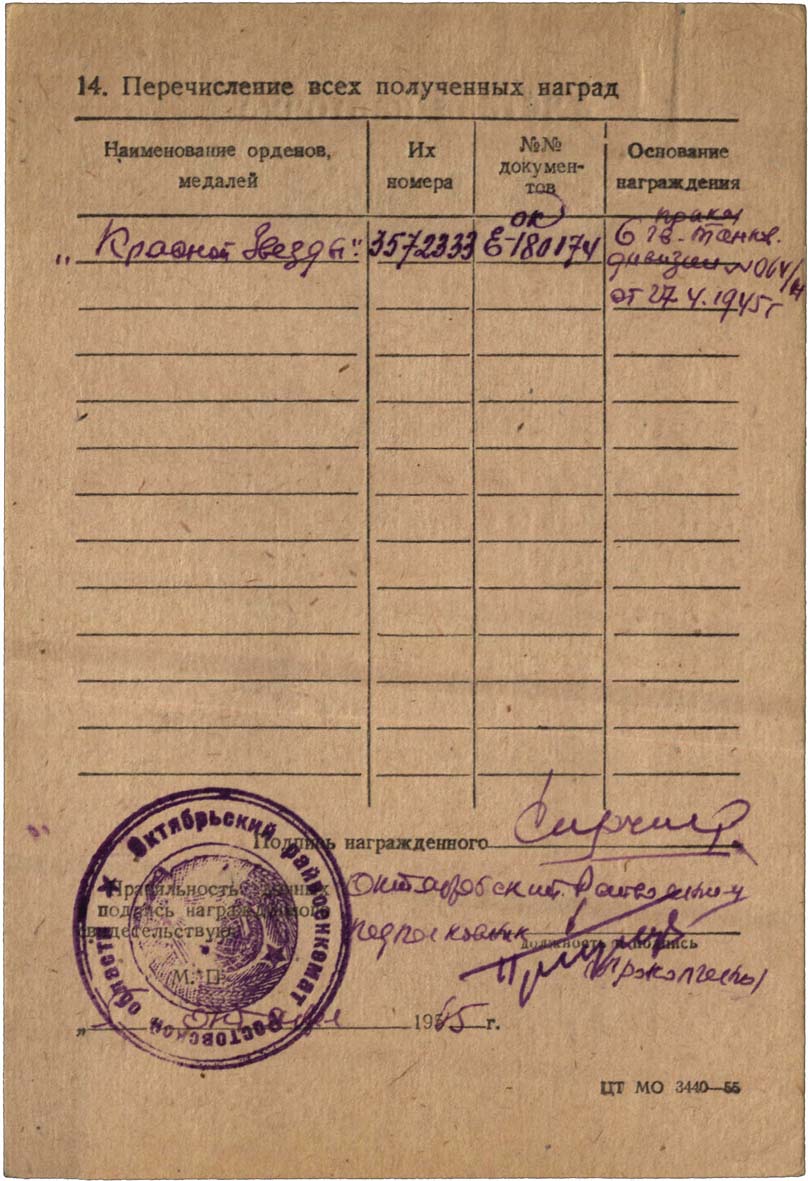 14. Перечисление всех полученных наград
Наименование орденов, медалей
Их номера
№№ документов
Основание награждения
„Красной Звезды"
3572333
ок
Е-180174
приказ
6 гв. танков.
дивизии №064/н
от 27.4.1945г
Подпись награжденного
Правильность данных
подпись награжденного
свидетельствую
Октябрьский
подполковник
должность и подпись
М. П.
„ 195 г.
Октябрьский райвоенкомат Ростовской области
ЦТ МО 3440—55